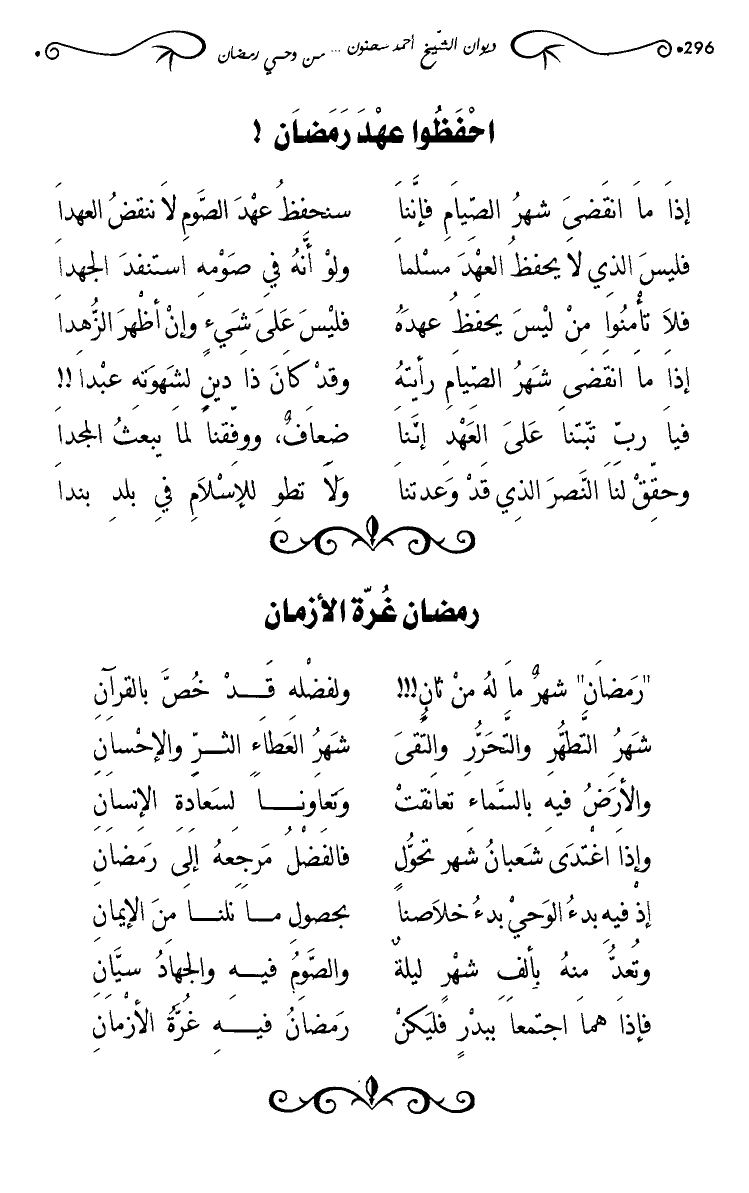 296 ديوان الشّيخ أحمد سحنون ... من وحي رمضان
احْفَظُوا عهْدَ رَمَضَان !
إذَا مَا انقَضىَ شهرُ الصّيامِ فإنَّناَ سنحفظُ عهْدَ الصَّومِ لاَ ننقضُ العهداَ
فليسَ الذي لا يحفظُ العهْدَ مسْلماً ولوْ أنَّهُ في صَوْمه استنفدَ الجهدا
فلاَ تأْمنُوا مِنْ ليْسَ يحفظُ عهدَهُ فليْسَ عَلىَ شَيءٍ وإنْ أظْهرَ الزُّهدا
إذَا مَا انقَضى شهرُ الصّيامِ رأيتهُ وقدْ كانَ ذا دينٍ لشَهوَتهِ عبْدا !!
فياَ ربّ ثبّتنا عَلىَ العَهْدِ إنّناَ ضعافٌ، ووفّقناَ لماَ يبعثُ المجدا
وحقّقْ لنَا النَّصرَ الذي قدْ وَعدتناَ ولاَ تطوِ للإسْلاَمِ فيِ بلدٍ بنداَ
رمضان غُرّة الأزمان
"رَمَضَان" شهرٌ ماَ لهُ منْ ثانٍ!!! ولفضْله قَـــدْ خُصَّ بالقرآنِ
شَهرُ التَّطهُّرِ والتَّحَرُّرِ والتُّقىَ شَهرُ العَطاءِ الثـــرّ والإحْسانِ
والأرَضُ فيهِ بالسَّماء تعانقتْ وتَعاونـــا لسَعادَة الإنسَانِ
وإذَا اغْتدَى شَعبانُ شهرَ تحَوُّلٍ فالفضْلُ مَرجعهُ إلى رَمَضانِ
إذْ فيه بدءُ الوَحيْ بدءُ خلاَصناَ بحصولِ مـــا نلنـــا منَ الإيمانِ
وتُعدُّ منهُ بألفِ شهْرٍ ليلةٌ والصَّومُ فيـــهِ والجهادُ سيَّانِ
فإذَا هماَ اجتمعاَ ببدْرٍ فليَكنْ رَمَضانُ فيـــهِ غُرَّةُ الأزْمانِ